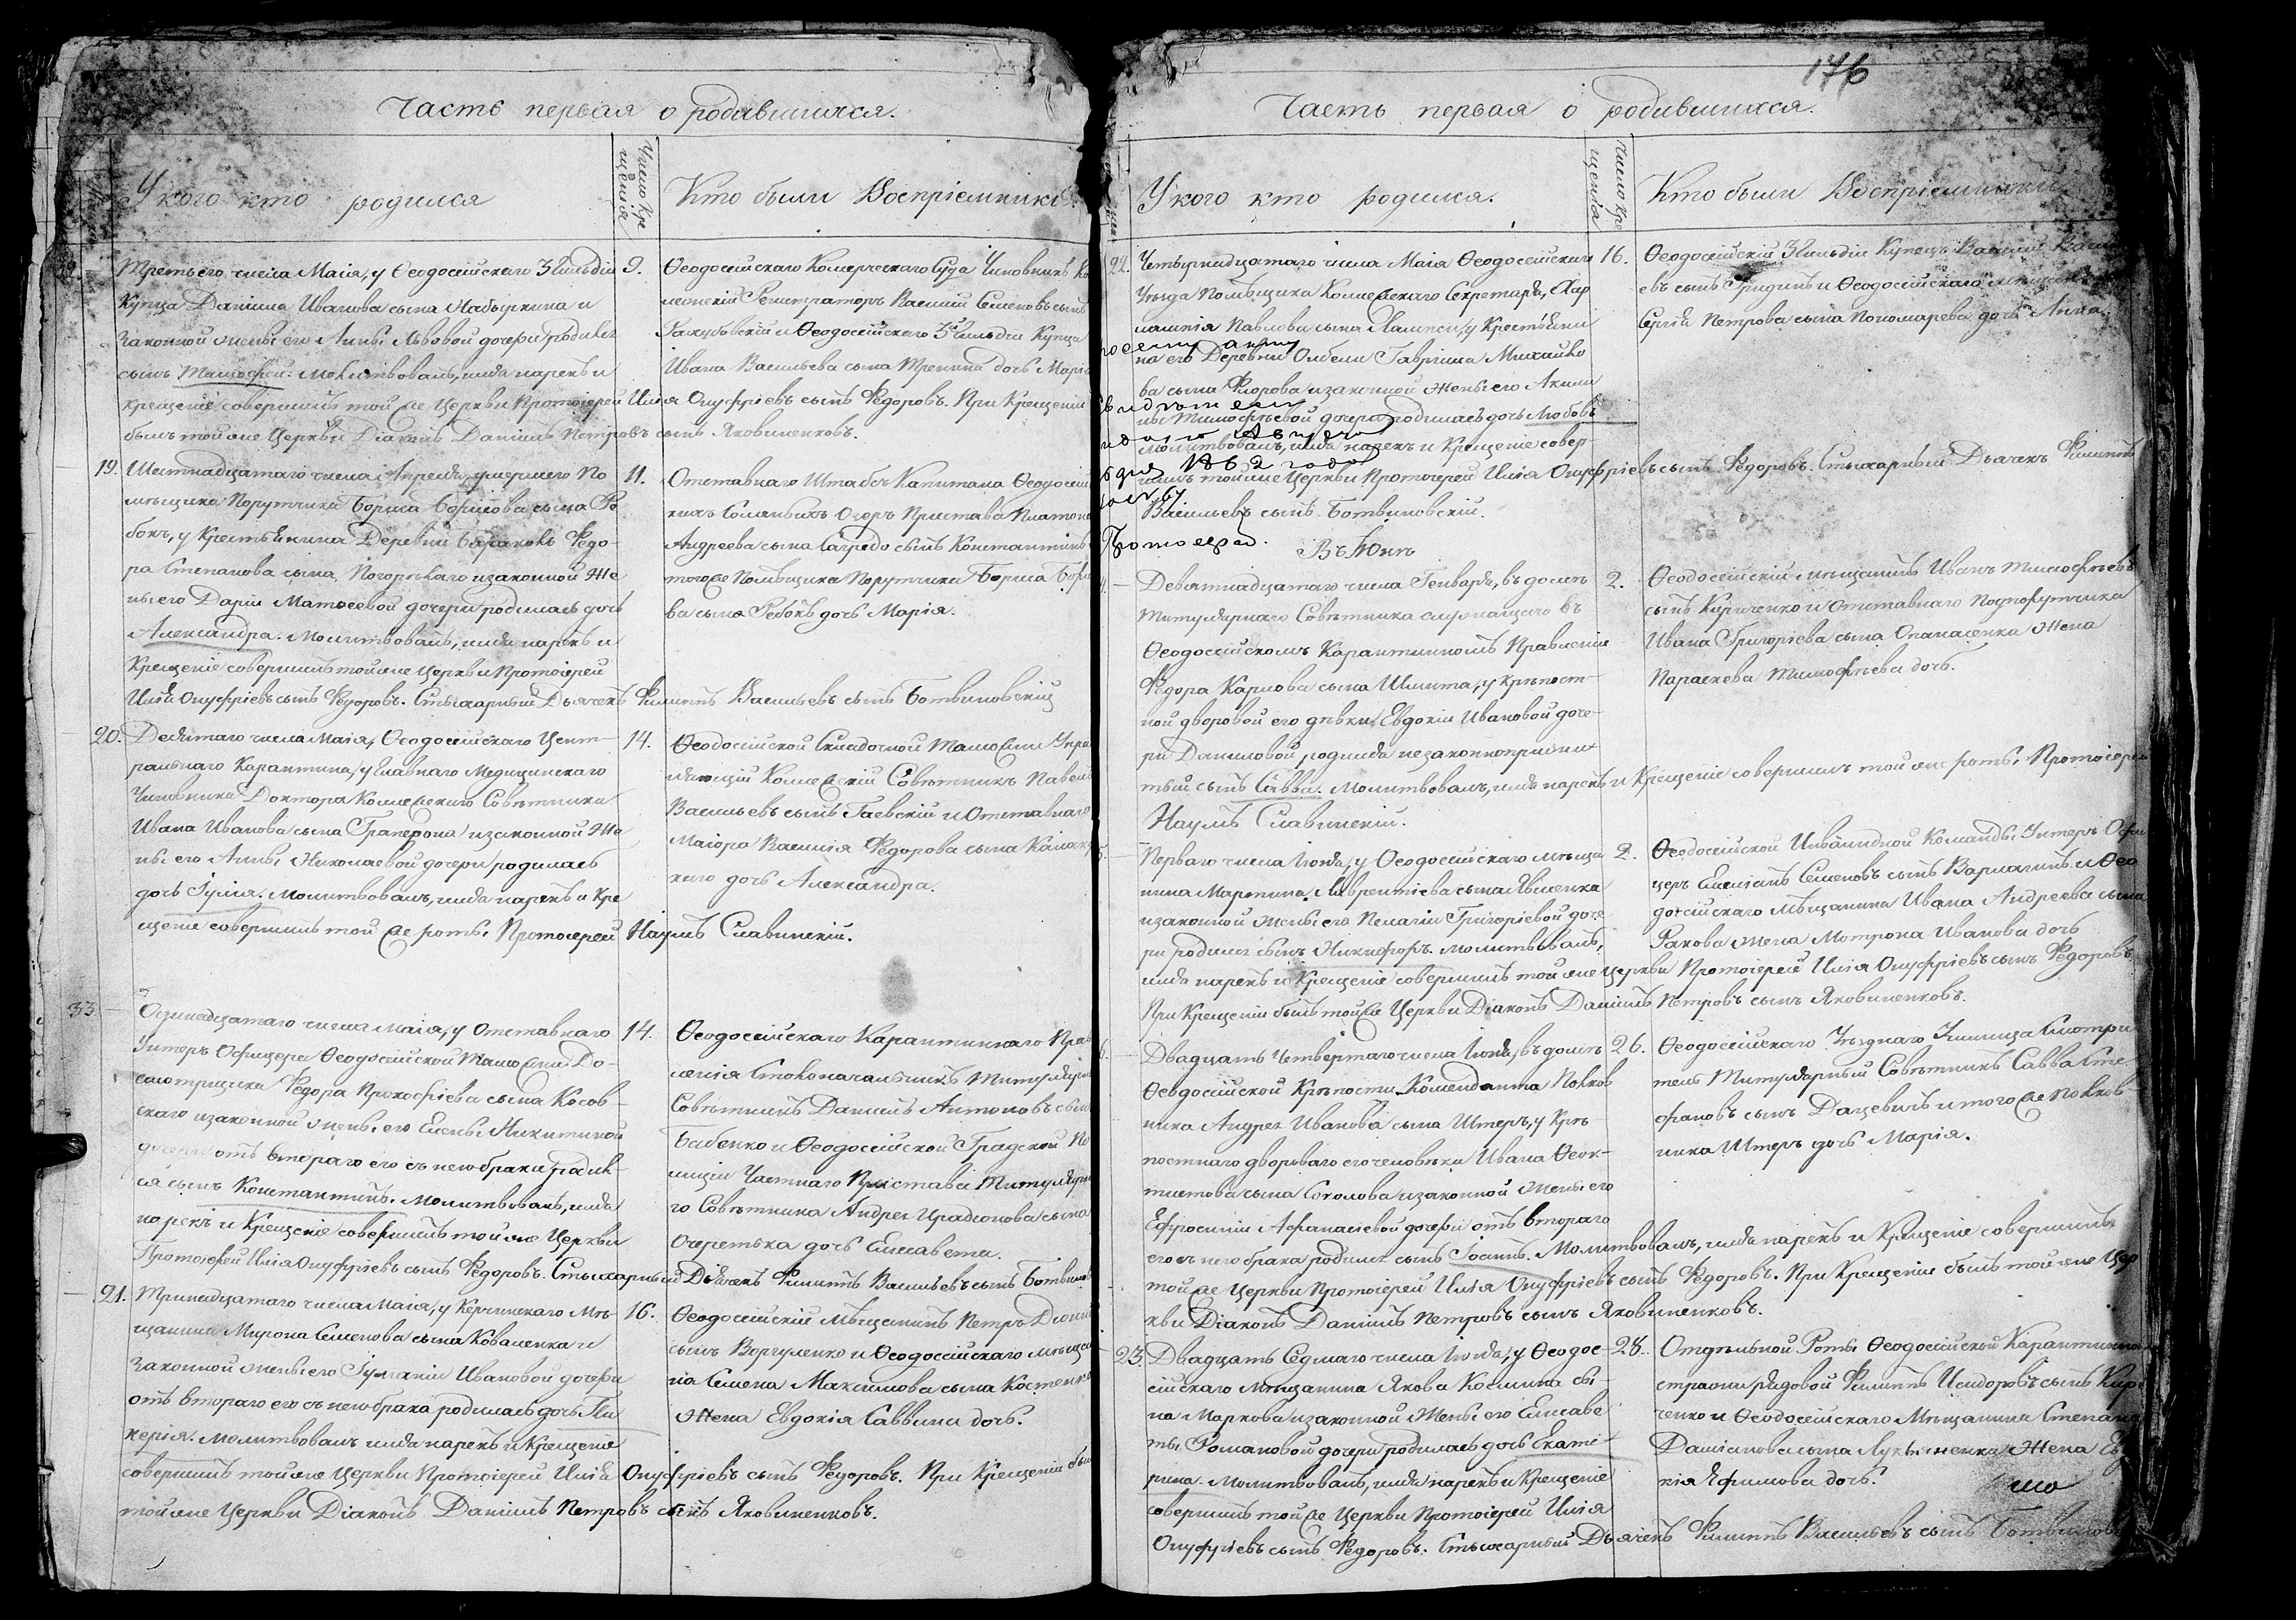 Часть первая о родившихся.
У кого кто родился
Число Крещенія
Кто были Воспріемники.
Третьего числа Маія, у Ѳеодосійскаго 3 Гильдіи
Купца Даніила Иванова сына Набыркина и
законной жены его Анны Львовой дочери родился
сынъ Тимоѳей. Молитвовалъ, имя нарекъ и
крещеніе совершилъ той же Церкви Протоіерей Илія Онуфріевъ сынъ Ѳедоровъ. При Крещеніи
былъ той же Церкви Діаконъ Даніилъ Петровъ сынъ Яковиненковъ.
9.
Ѳеодосійскаго Комерческаго Суда Чиновникъ Ко
лежскій Регистраторъ Василій Семеновъ сынъ
и Ѳеодосійскаго 3й Гильдіи Купца
Ивана Васильева сына Тренина дочь Марія
19. Шестнадцатаго числа Апреля, умершего По
мѣщика Порутчика Бориса Борисова сына Ре
бокъ, у Крестьянина Деревни Бараколь Ѳедо-
ра Степанова сына Погорѣлаго и законной Же
ны его Даріи Матѳеевой дочери родилась дочь
Александра. Молитвовалъ, имя нарекъ и
Крещеніе совершилъ той же Церкви Протоіерей
Илія Онуфріевъ сынъ Ѳедоровъ. Стихарный Дьячекъ Филиппъ Васильевъ сынъ Ботвиновскій
11.
Отставнаго Штабсъ Капитана Ѳеодосій
кихъ Соляныхъ Озеръ Пристава Платона
Андреева сына Сагредо сынъ Константинъ
того же Помѣщика Порутчика Бориса Бори
ва сына Ребокъ дочь Марія.
20. Десятаго числа Маія, Ѳеодосійскаго Цент-
ральнаго Карантина, у Главнаго Медицинскаго
Чиновника Доктора Коллежскаго Совѣтника
Ивана Иванова сына Граперона и законной Же
ны его Анны Николаевой дочери родилась
дочь Іулія. Молитвовалъ, имя нарекъ и Кре
щеніе совершилъ той же роты Протоіерей Наумъ Славинскій.
14.
Ѳеодосійской Складочной Таможни Упра
вляющій Коллежскій Совѣтникъ Павелъ
Васильевъ сынъ Гаевскій и Отставнаго
Маіора Василія Ѳедорова сына
каго дочь Александра.
33
Одинадцатаго числа Маія, у Отставнаго
Унтеръ Офицера Ѳеодосійской Таможни До-
смотрщика Ѳедора Прокофіева сына Косов-
скаго и законной жены его Елены Никитиной
дочери отъ втораго его съ нею брака родил-
ся сынъ Константинъ. Молитвовалъ, имя
нарекъ и Крещеніе совершилъ той же Церкви
Протоіерей Илія Онуфріевъ сынъ Ѳедоровъ. Стихарный Дьячекъ Филиппъ Васильевъ сынъ Ботвинов
14.
Ѳеодосійскаго Карантиннаго Прав
ленія Столоначальникъ Титулярн
Совѣтникъ Даніилъ Антоновъ сынъ
Бабенко и Ѳеодосійской Градской По
лиціи Частнаго Пристава Титулярн
го Совѣтника Андрея Ирадіонова сына
Очеретька дочь Елисавета.
21. Тринадцатаго числа Маія, у Керчинскаго Мѣ
щанина Мирона Семенова сына Коваленка и
законной жены его Іуліаніи Ивановой дочери
отъ втораго его съ нею брака родилась дочь Гли
керія. Молитвовалъ имя нарекъ и Крещеніе
совершилъ той же Церкви Протоіерей Илія Онуфріевъ сынъ Ѳедоровъ. При Крещеніи былъ
той же Церкви Діаконъ Даніилъ Петровъ сынъ Яковиненковъ.
16.
Ѳеодосійскій Мѣщанинъ Петръ Діони
сынъ Вергуленко и Ѳеодосійскаго Мѣща
на Семена Максимова сына Костенко
Жена Евдокія Саввина дочь.
176
Часть первая о родившихся.
У кого кто родился.
Число Крещенія
Кто были Воспріемники
22. Четырнадцатаго числа Маія Ѳеодосійскаго
Уѣзда Помѣщика Коллежскаго Секретаря, Хар
лампія Павлова сына Лампси, у Крестьяни
на его Деревни Олбели Гавріила Михайло
ва сына Флорова и законной Жены его Акили
ны Тимофѣевой дочери родилась дочь Любовь
Молитвовалъ, имя нарекъ и Крещеніе совер
шилъ той же Церкви Протоіерей Илія Онуфріевъ сынъ Ѳедоровъ. Стихарный Дьячекъ Филиппъ
Васильевъ сынъ Ботвиновскій.
по сему акту
1862 года
Протоіерей.
16.
Ѳеодосійскій 3 Гильдіи Купецъ Василій Васил
евъ сынъ Гридинъ и Ѳеодосійскаго мѣщанина
Сергія Петрова сына Пономарева дочь Анна.
Въ Юнѣ
Девятнадцатаго числа Генваря, въ домѣ
Титулярнаго Совѣтника служащаго въ
Ѳеодосійскомъ Карантинномъ Правленіи
Ѳедора Карлова сына Шмита, у крѣпост-
ной дворовой его дѣвки Евдокіи Ивановой доче-
ри Даниловой, родился незаконноприжи
тый сынъ Савва. Молитвовалъ, имя нарекъ и Крещеніе совершилъ той же роты Протоіерей
Наумъ Славинскій.
2.
Ѳеодосійскій мѣщанинъ Иванъ Тимофѣевъ
сынъ Кириченко и Отставнаго Подпорутчика
Ивана Григоріева сына Опанасенка Жена
Параскева Тимофѣева дочь.
Перваго числа Іюня, у Ѳеодосійскаго мѣща
нина Мартина Лаврентіева сына Явленка
и законной жены его Пелагіи Григоріевой доче
ри родился сынъ Никифоръ. Молитвовалъ,
имя нарекъ и Крещеніе совершилъ той же Церкви Протоіерей Илія Онуфріевъ сынъ Ѳедоровъ.
При Крещеніи былъ той же Церкви Діаконъ Даніилъ Петровъ сынъ Яковиненковъ.
2.
Ѳеодосійской Инвалидной Команды Унтеръ Офи
церъ Емеліанъ Семеновъ сынъ Варлагинъ и Ѳео
досійскаго Мѣщанина Ивана Андреева сына
Ракова жена Мотрона Иванова дочь
Двадцать Четвертаго числа Іюня, въ домѣ
Ѳеодосійской Крѣпости Коменданта Полков
ника Андрея Иванова сына Штеръ, у Крѣ
постнаго дворваго его человѣка Ивана Ѳеок-
тистова сына Соколова и законной жены его
Ефросиніи Афанасіевой дочери отъ втораго
его съ нею брака родился сынъ Іоаннъ. Молитвовалъ, имя нарекъ и Крещеніе совершилъ
той же Церкви Протоіерей Илія Онуфріевъ сынъ Ѳедоровъ. При Крещеніи былъ той же Цер
кви Діаконъ Даніилъ Петровъ сынъ Яковиненковъ.
26.
Ѳеодосійскаго Уѣзднаго Училища Смотри
тель Титулярный Совѣтникъ Савва Сте
фановъ сынъ Дацевичъ и того же Полков-
ника Штеръ дочь Марія.
23. Двадцать Седмаго числа Іюня, у Ѳеодос-
сійскаго Мѣщанина Якова Космина сы-
на Маркова и законной Жены его Елисаве
ты Романовой дочери родилась дочь Екате-
рина. Молитвовалъ, имя нарекъ и Крещеніе
совершилъ той же Церкви Протоіерей Илія
Онуфріевъ сынъ Ѳедоровъ. Стихарный Дьячекъ Филиппъ Васильевъ сынъ Ботвинов
28.
Отдѣльной Роты Ѳеодосійской Карантинной
стражи рядовой Филиппъ Исидоровъ сынъ Кири
ченко и Ѳеодосійскаго Мѣщанина Степана
Даміанова сына Лукьяненка Жена Ев
кія Ефимова дочь.